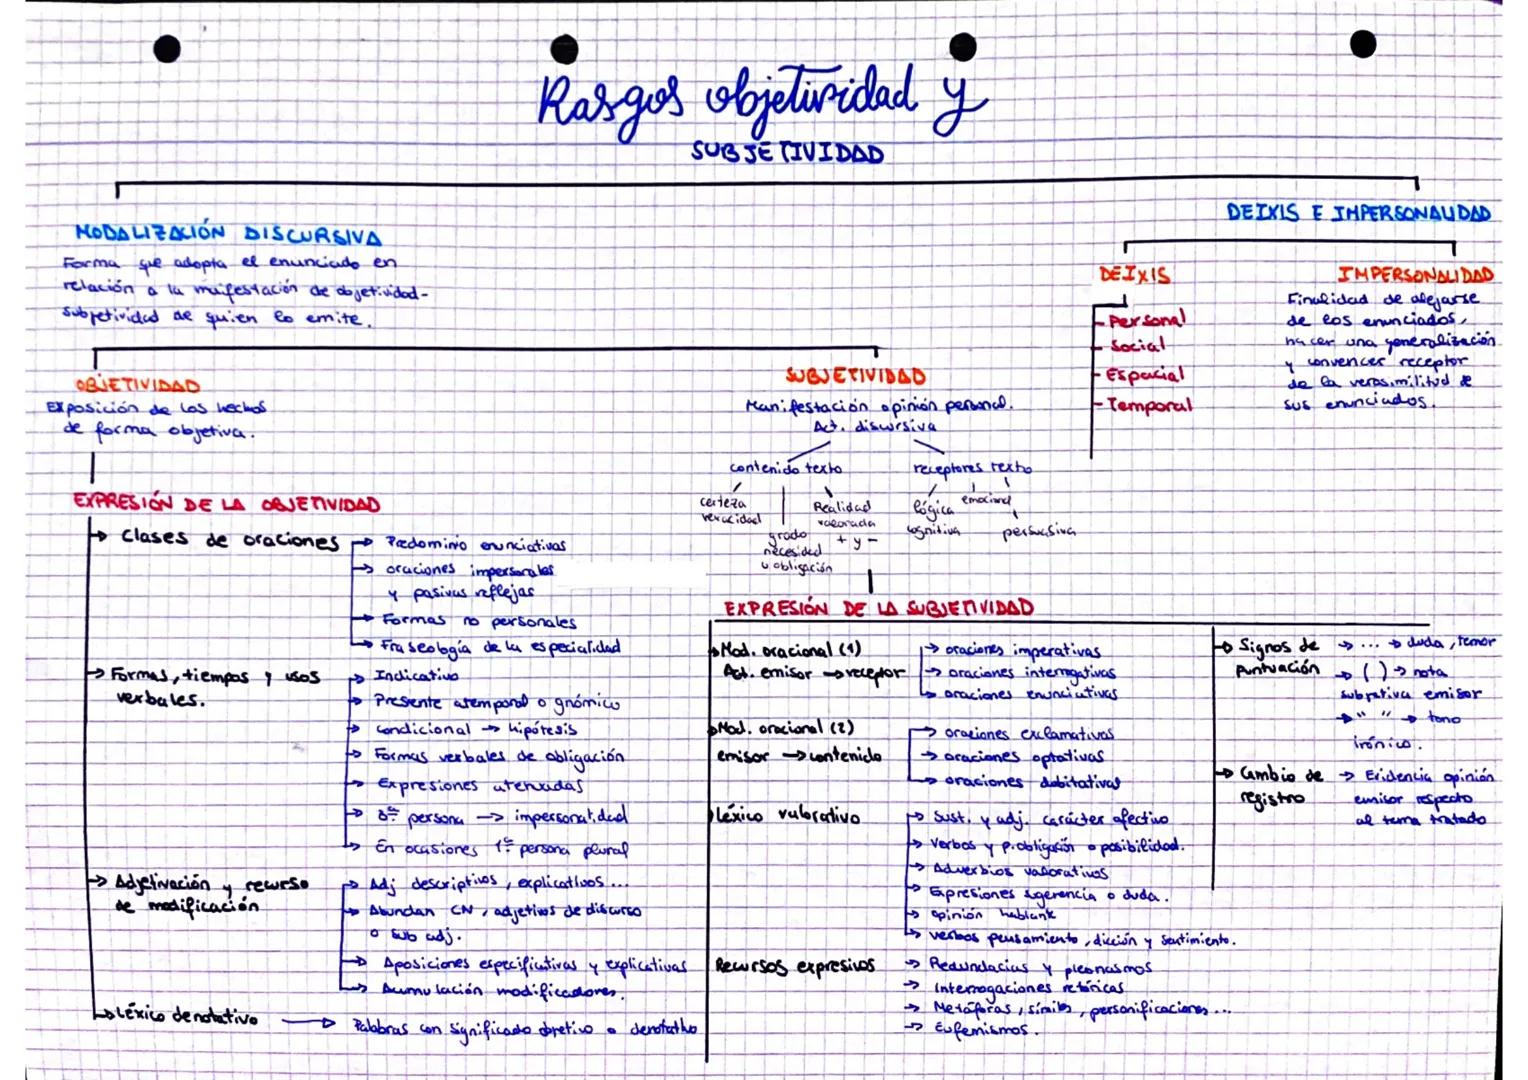 Rasgos objetividad y
SUBJETIVIDAD
MODALIZACIÓN DISCURSIVA
Forma que adopta el enunciado en
relación a la maifestación de objetividad-
subjetividad de quien lo emite.
OBJETIVIDAD
Exposición de los hechos
de forma objetiva.
EXPRESIÓN DE LA OBJETIVIDAD
→ Clases de oraciones
→ Predominio enunciativas
→ oraciones impersonales
y pasivas reflejas
→ Formas no personales
→ Fraseología de la especialidad
→ Formas, tiempos y usos
verbales.
→ Indicativo
→ Presente atemporal o gnómico
→ condicional → hipótesis
→ Formas verbales de obligación
→ Expresiones atenuadas
→ 3ª persona → impersonalidad
→ En ocasiones 1ª persona plural
→ Adjetivación y recurso
de modificación
→ Adj descriptivos, explicativos...
→ Abundan CN, adjetivos de discurso
o sub adj.
→ Aposiciones especificativas y explicativas
→ Acumulación modificadores.
→ Léxico denotativo → Palabras con significado objetivo o denotativo
SUBJETIVIDAD
Manifestación opinión personal.
Act. discursiva
contenido texto
certeza
veracidad
grado
necesidad
u obligación
Realidad
valorada
+ y -
receptores texto
lógica
cognitiva
emocional
persuasiva
EXPRESIÓN DE LA SUBJETIVIDAD
→ Mod. oracional (1)
Act. emisor → receptor
→ oraciones imperativas
→ oraciones interrogativas
→ oraciones enunciativas
→ Mod. oracional (2)
emisor → contenido
→ oraciones exclamativas
→ oraciones optativas
→ oraciones dubitativas
Léxico valorativo
→ Sust. y adj. carácter afectivo
→ Verbos y p. obligación o posibilidad.
→ Adverbios valorativos
→ Expresiones sgerencia o duda.
→ opinión hablante
→ verbos pensamiento, dicción y sentimiento.
Recursos expresivos
→ Redundacias y pleonasmos
→ Interrogaciones retóricas
→ Metáforas, símiles, personificaciones...
→ Eufemismos.
→ Signos de
puntuación
→ ... → duda, temor
→ ( ) → nota
subjetiva emisor
→ " " → tono
irónico.
→ Cambio de
registro
→ Evidencia opinión
emisor respecto
al tema tratado
DEIXIS E IMPERSONALIDAD
DEIXIS
- Personal
- Social
- Espacial
- Temporal
IMPERSONALIDAD
Finalidad de alejarse
de los enunciados,
hacer una generalización
y convencer receptor
de la verosimilitud de
sus enunciados.